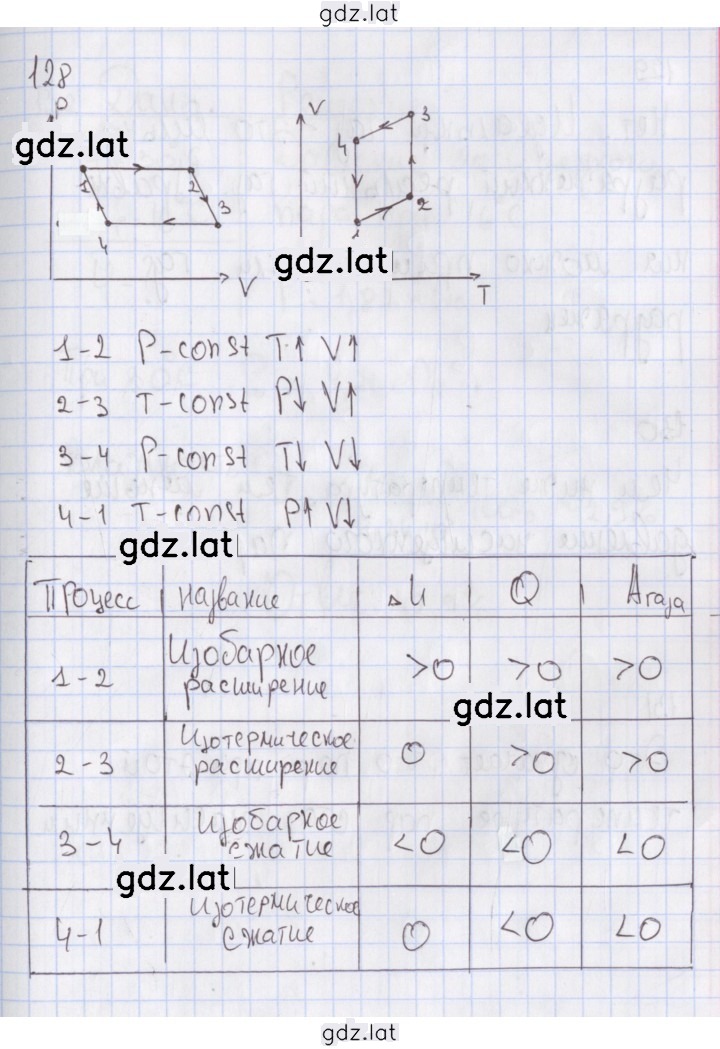 gdz.lat
128
P
V
3
gdz.lat
4
1
2
2
3
4
1
gdz.lat
V
T
1-2 P-const T↑ V↑
2-3 T-const P↓ V↑
3-4 P-const T↓ V↓
4-1 T-const P↑ V↓
gdz.lat
Процесс название ΔU Q Aгаза
1-2 Изобарное расширение >0 >0 >0
gdz.lat
2-3 Изотермическое расширение 0 >0 >0
3-4 Изобарное сжатие <0 <0 <0
gdz.lat
4-1 Изотермическое сжатие 0 <0 <0
gdz.lat